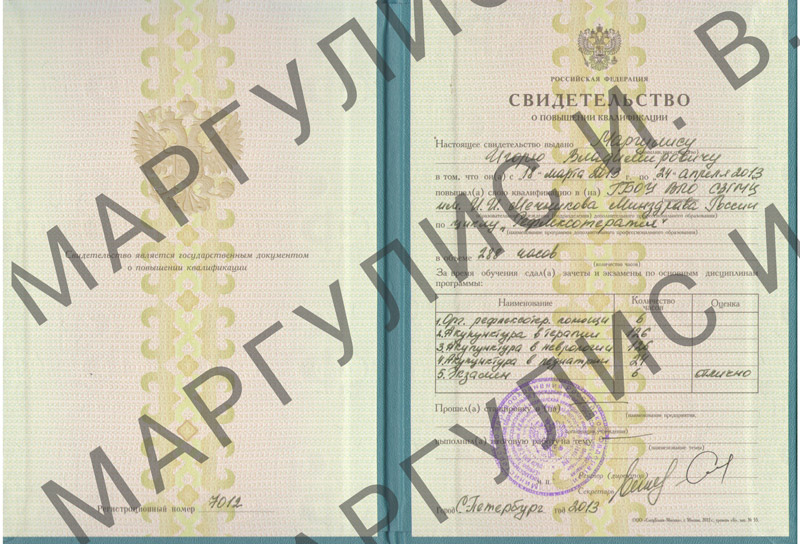 Свидетельство является государственным документом
о повышении квалификации
Регистрационный номер 7012
РОССИЙСКАЯ ФЕДЕРАЦИЯ
СВИДЕТЕЛЬСТВО
О ПОВЫШЕНИИ КВАЛИФИКАЦИИ
Настоящее свидетельство выдано Маргулису
Игорю Владимировичу
в том, что он(а) с 18 марта 2013 г. по 24 апреля 2013
повысил(а) свою квалификацию в (на) ГБОУ ВПО СЗГМУ
им. И.И. Мечникова Минздрава России
(наименование образовательного учреждения (подразделения) дополнительного профессионального образования)
по циклу „Рефлексотерапия"
(наименование программы дополнительного профессионального образования)
в объеме 288 часов
(количество часов)
За время обучения сдал(а) зачеты и экзамены по основным дисциплинам
программы:
Наименование Количество часов Оценка
1. Орг. рефлексотер. помощи 6
2. Акупунктура в терапии 126
3. Акупунктура в неврологии 126
4. Акупунктура в педиатрии 24
5. Экзамен 6 отлично
Прошел(а) стажировку в (на)
(наименование предприятия,
организации, учреждения)
выполнил(а) итоговую работу на тему
(наименование темы)
М. П.
Ректор (директор)
Секретарь
Город С Петербург год 2013
МАРГУЛИС И. В.
МАРГУЛИС И